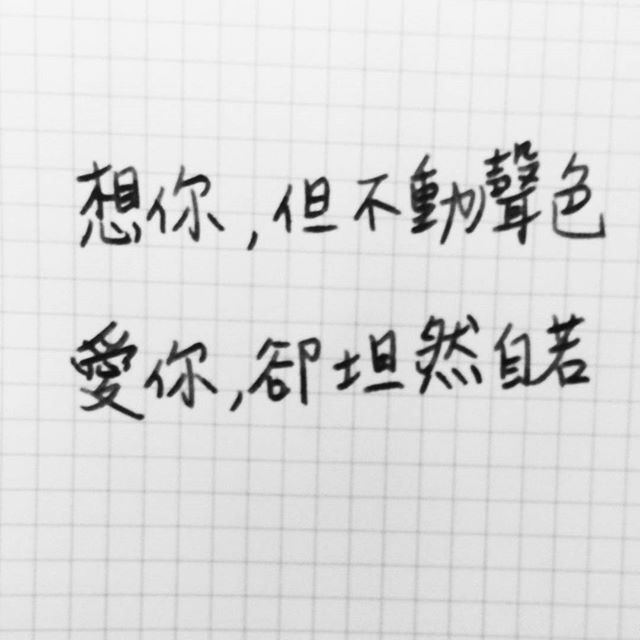 想你,但不動聲色
愛你,卻坦然自若